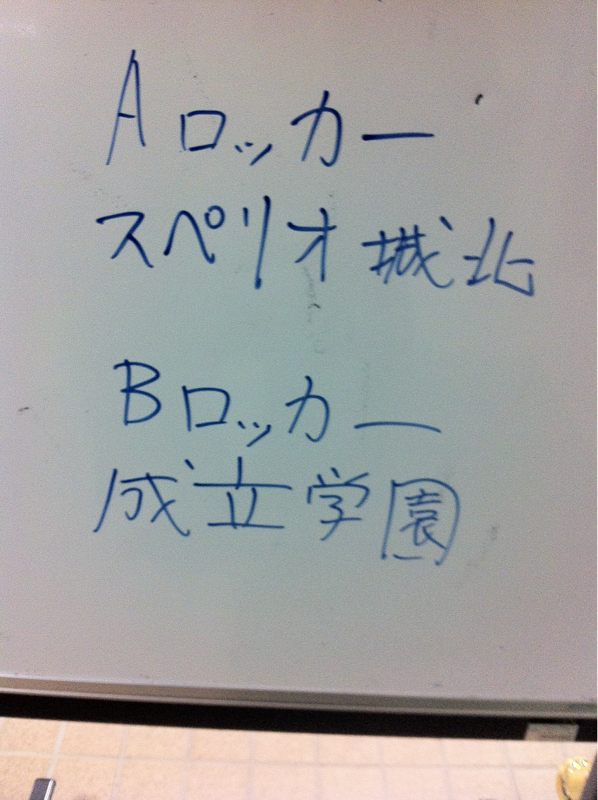 Aロッカー
スペリオ城北
Bロッカー
成立学園